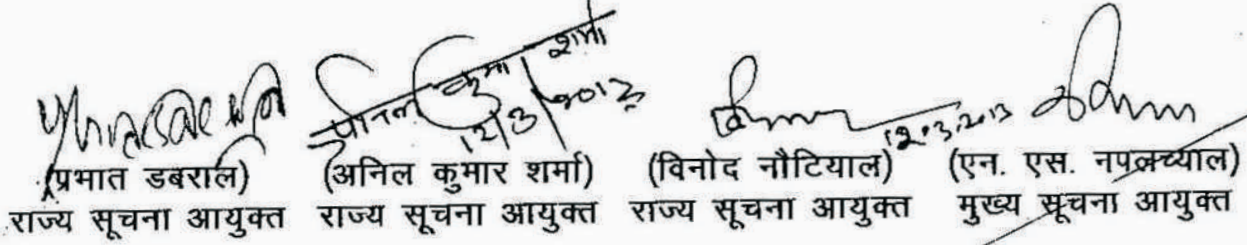 अनिल कुमार शर्मा
12/3/2013
12.03.2013
(प्रभात डबराल) (अनिल कुमार शर्मा) (विनोद नौटियाल) (एन. एस. नपलच्याल)
राज्य सूचना आयुक्त राज्य सूचना आयुक्त राज्य सूचना आयुक्त मुख्य सूचना आयुक्त